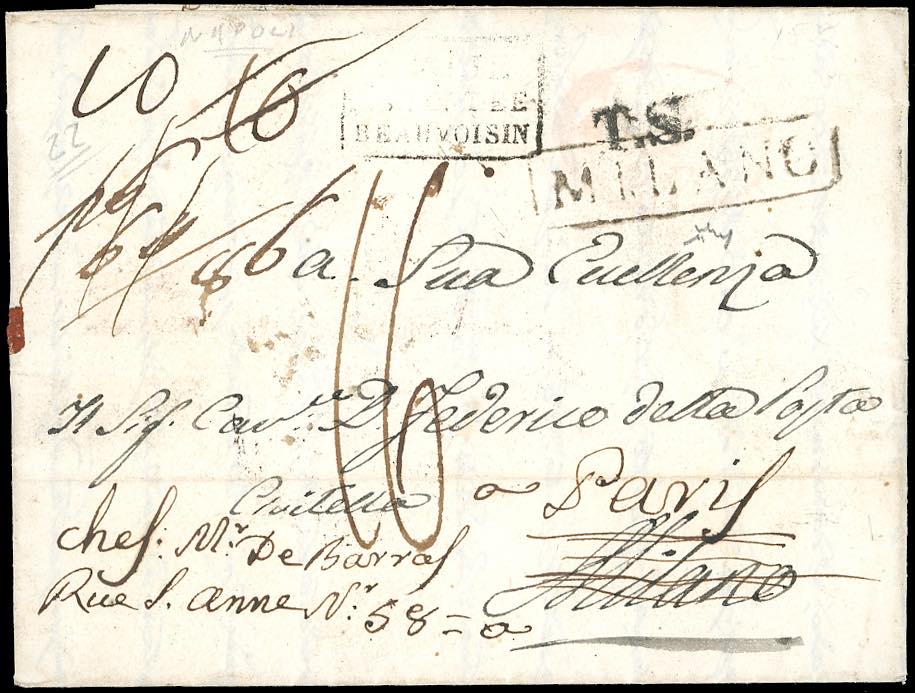 NAPOLI
10 16
BEAUVOISIN
T.S.
MILANO
22
a Sua Eccellenza
Il Sig. Cav.re D. Federico della Posta
Civitella a Paris
chez: Mr. De Barras Milano
Rue S. anne Nr. 58 = a